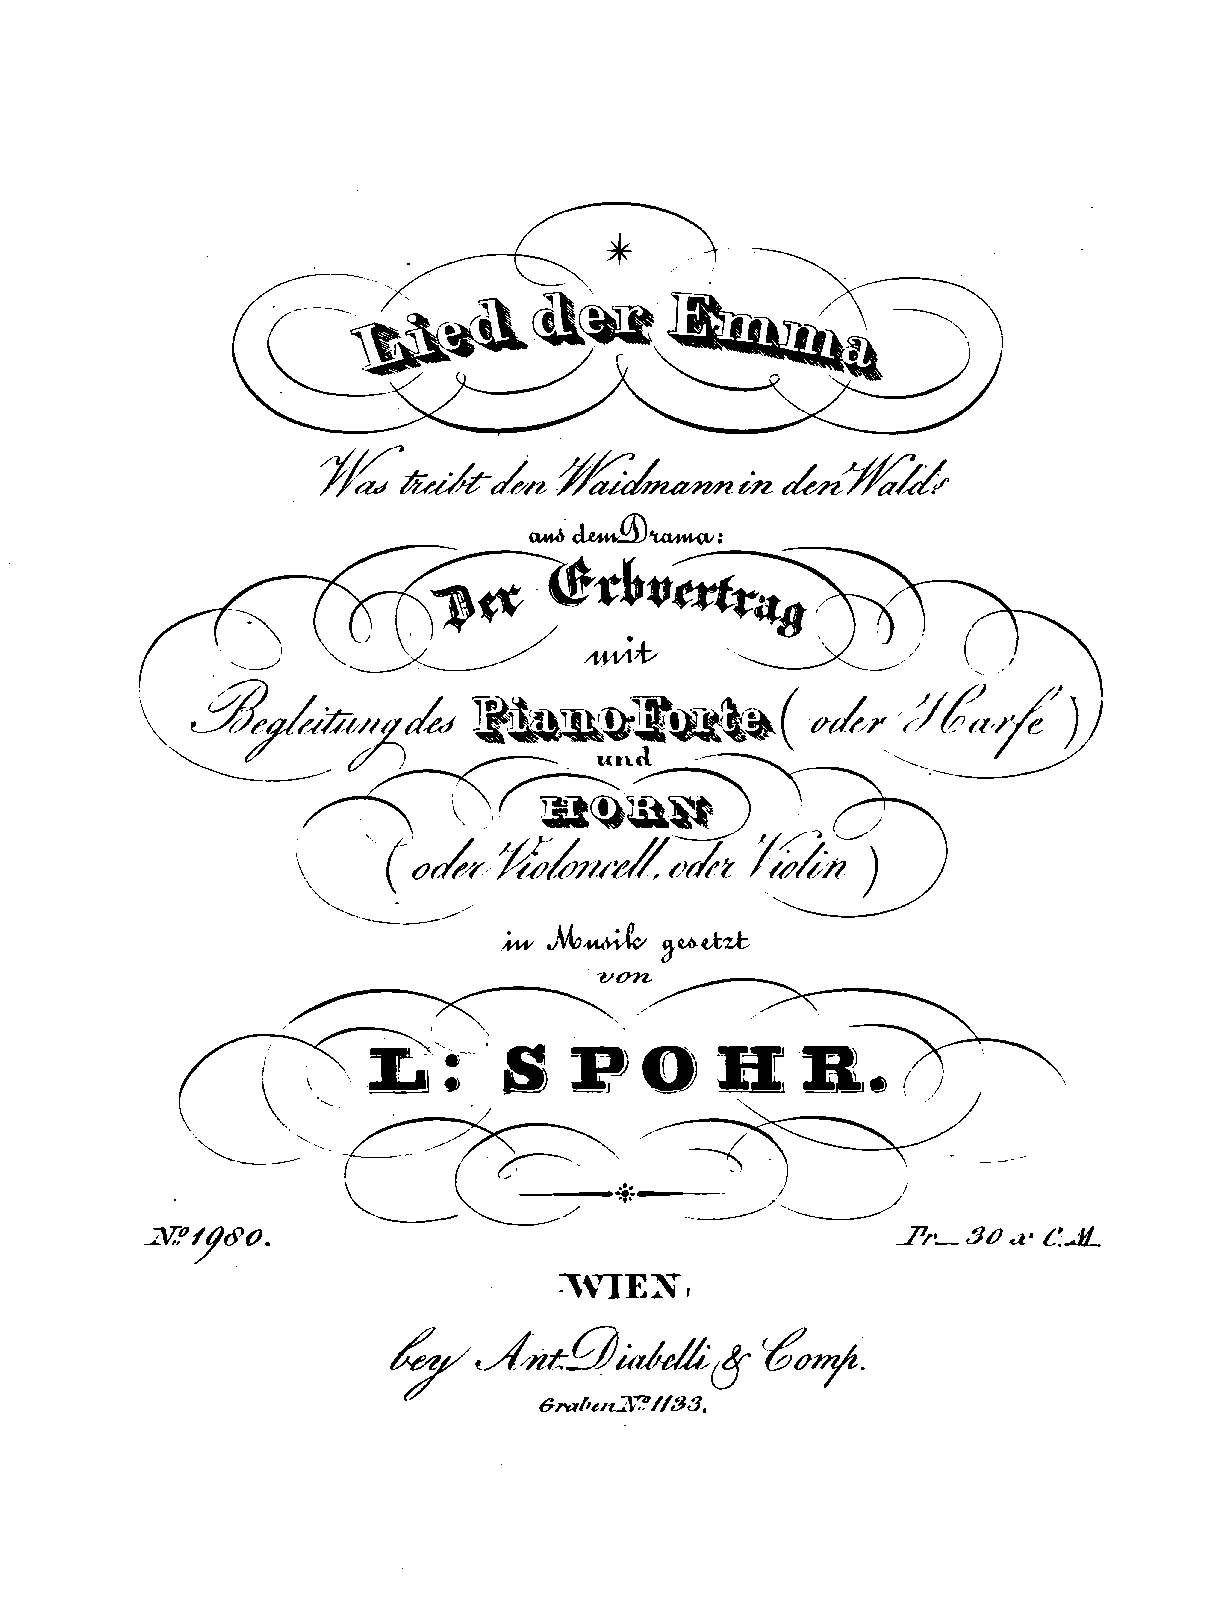 Lied der Emma
Was treibt den Waidmann in den Wald?
aus dem Drama:
Der Erbvertrag
mit
Begleitung des Piano-Forte ( oder Harfe )
und
HORN
( oder Violoncell, oder Violin )
in Musik gesetzt
von
L: SPOHR.
No 1980. Pr_ 30 x C.M.
WIEN,
bey Ant. Diabelli & Comp.
Graben No 1133.